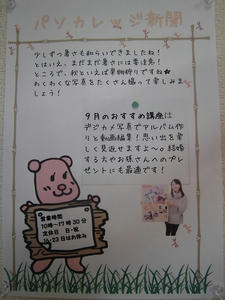 パソカレッジ新聞
少しずつ暑さも和らいできましたね！
とはいえ、まだまだ暑さには要注意！
ところで、秋といえば果物狩りですね★
わくわくな写真をたくさん撮って楽しみま
しょう！
9月のおすすめ講座は
デジカメ写真でアルバム作り
と動画編集！思い出を楽
しく見返せますよ～。結婚
する方やお孫さんへのプレ
ゼントにも最適です！
営業時間
10時～17時30分
定休日 日・祝
16・23日はお休み